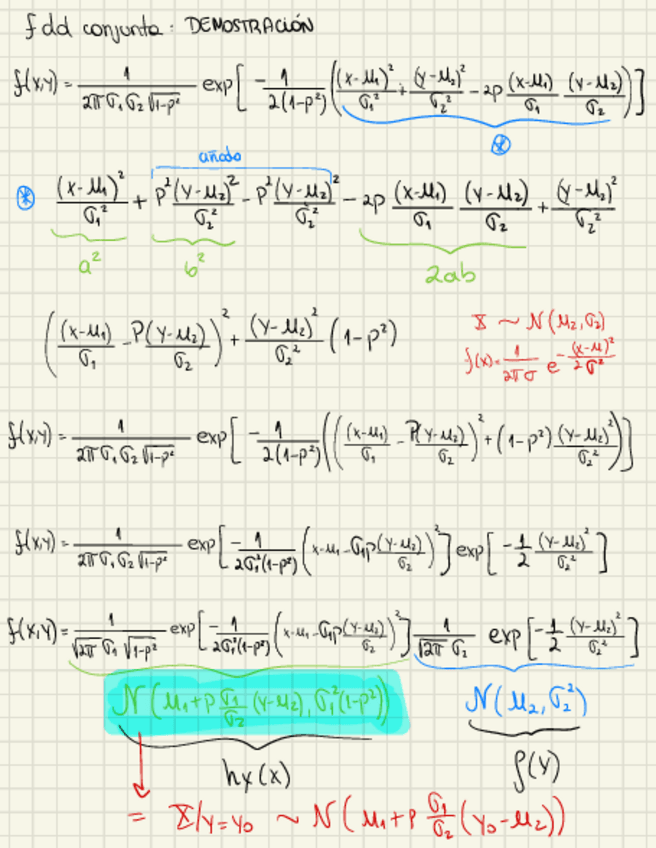 fdd conjunta: DEMOSTRACIÓN
f(x,y) = 1/(2π σ₁ σ₂ √(1-ρ²)) exp[ -1/(2(1-ρ²)) ( (x-μ₁)²/σ₁² + (y-μ₂)²/σ₂² - 2ρ (x-μ₁)/σ₁ (y-μ₂)/σ₂ ) ]
*
añado
* (x-μ₁)²/σ₁² + ρ²(y-μ₂)²/σ₂² - ρ²(y-μ₂)²/σ₂² - 2ρ (x-μ₁)/σ₁ (y-μ₂)/σ₂ + (y-μ₂)²/σ₂²
a² b² 2ab
( (x-μ₁)/σ₁ - ρ(y-μ₂)/σ₂ )² + (y-μ₂)²/σ₂² (1-ρ²)
X ~ N(μ₂,σ₂)
f(x) = 1/(2π σ) e^(-(x-μ)²/(2σ²))
f(x,y) = 1/(2π σ₁ σ₂ √(1-ρ²)) exp[ -1/(2(1-ρ²)) ( ( (x-μ₁)/σ₁ - ρ(y-μ₂)/σ₂ )² + (1-ρ²) (y-μ₂)²/σ₂² ) ]
f(x,y) = 1/(2π σ₁ σ₂ √(1-ρ²)) exp[ -1/(2σ₁²(1-ρ²)) ( x-μ₁ - σ₁ρ (y-μ₂)/σ₂ )² ] exp[ -1/2 (y-μ₂)²/σ₂² ]
f(x,y) = 1/(√(2π) σ₁ √(1-ρ²)) exp[ -1/(2σ₁²(1-ρ²)) ( x-μ₁ - σ₁ρ (y-μ₂)/σ₂ )² ] 1/(√(2π) σ₂) exp[ -1/2 (y-μ₂)²/σ₂² ]
N( μ₁+ρ σ₁/σ₂ (y-μ₂), σ₁²(1-ρ²)) N( μ₂, σ₂²)
hy(x) f(y)
= X/y=y₀ ~ N( μ₁+ρ σ₁/σ₂ (y₀-μ₂))